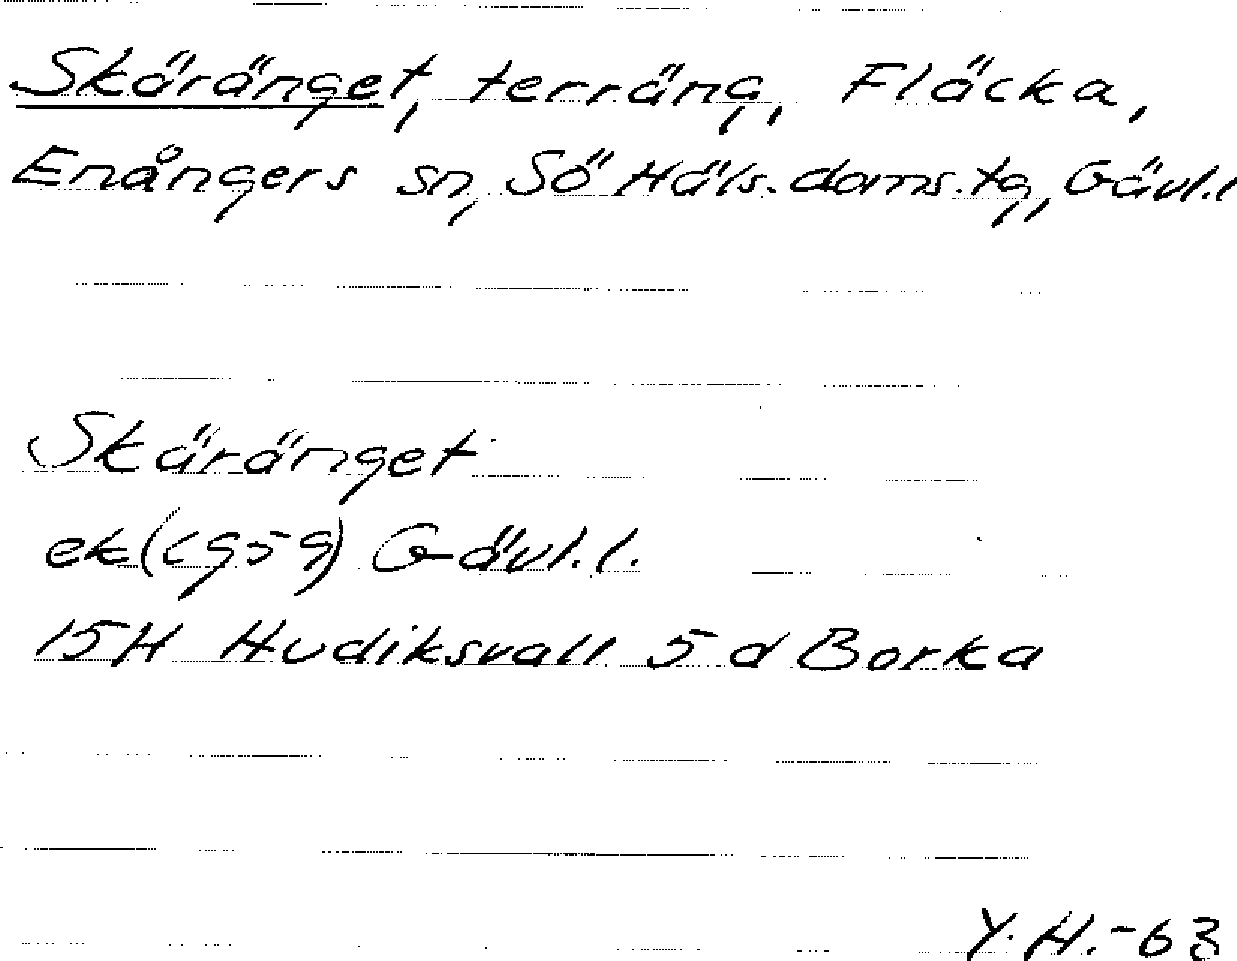 Skäränget, terräng, Fläcka,
Enångers sn, Sö Häls. doms. tg, Gävl. l
Skäränget
ek (1959) Gävl. l.
15H Hudiksvall 5 d Borka
Y. H. -63